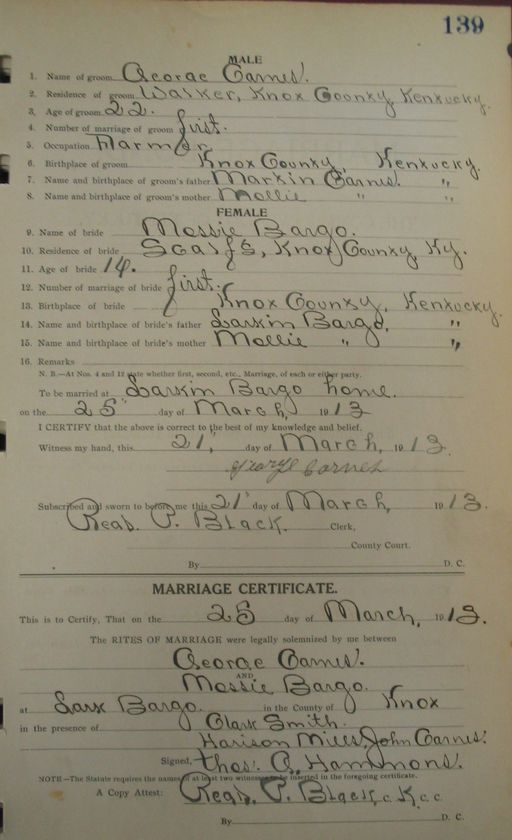 139
MALE
1. Name of groom George Carnes.
2. Residence of groom Walker, Knox County, Kentucky.
3. Age of groom 22.
4. Number of marriage of groom first.
5. Occupation Farmer
6. Birthplace of groom Knox County, Kentucky.
7. Name and birthplace of groom's father Markin Carnes. "
8. Name and birthplace of groom's mother Mollie " "
FEMALE
9. Name of bride Mossie Bargo.
10. Residence of bride Scalfs, Knox County, Ky.
11. Age of bride 14.
12. Number of marriage of bride first.
13. Birthplace of bride Knox County, Kentucky.
14. Name and birthplace of bride's father Larkin Bargo, "
15. Name and birthplace of bride's mother Mollie " "
16. Remarks
N. B.—At Nos. 4 and 12 state whether first, second, etc., Marriage, of each or either party.
To be married at Larkin Bargo home.
on the 25" day of March, 1913
I CERTIFY that the above is correct to the best of my knowledge and belief.
Witness my hand, this 21, day of March, 1913.
George Carnes
Subscribed and sworn to before me this 21' day of March, 1913.
Read. P. Black. Clerk,
County Court.
By D. C.
MARRIAGE CERTIFICATE.
This is to Certify, That on the 25 day of March, 1913.
The RITES OF MARRIAGE were legally solemnized by me between
George Carnes.
AND
Mossie Bargo.
at Lark Bargo. in the County of Knox
in the presence of Clark Smith.
Harison Mills, John Carnes.
Signed, Thos. Hammons.
NOTE—The Statute requires the names of at least two witnesses to be inserted in the foregoing certificate.
A Copy Attest: Read. P. Black, C. K. C. C.
By D. C.